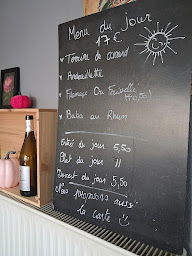 Menu du Jour
17€
* Terrine de canard
* Andouillette
* Fromage Ou Faisselle
* Baba au Rhum
Entrée du jour 5,50
Plat du jour 11
Dessert du jour 5,50
Nous proposons aussi
la carte